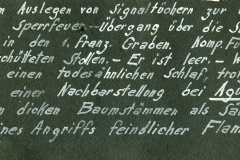 Auslegen von Signaltüchern zur
Sperrfeuer.-Übergang über die S
in den 1. franz. Graben. Komp.
schütteten Stollen.- Er ist leer.- W
einen todesähnlichen Schlaf, tro
einer Nachbarstellung bei Agu
n dicken Baumstämmen als Sä
ines Angriffs feindlicher Flam